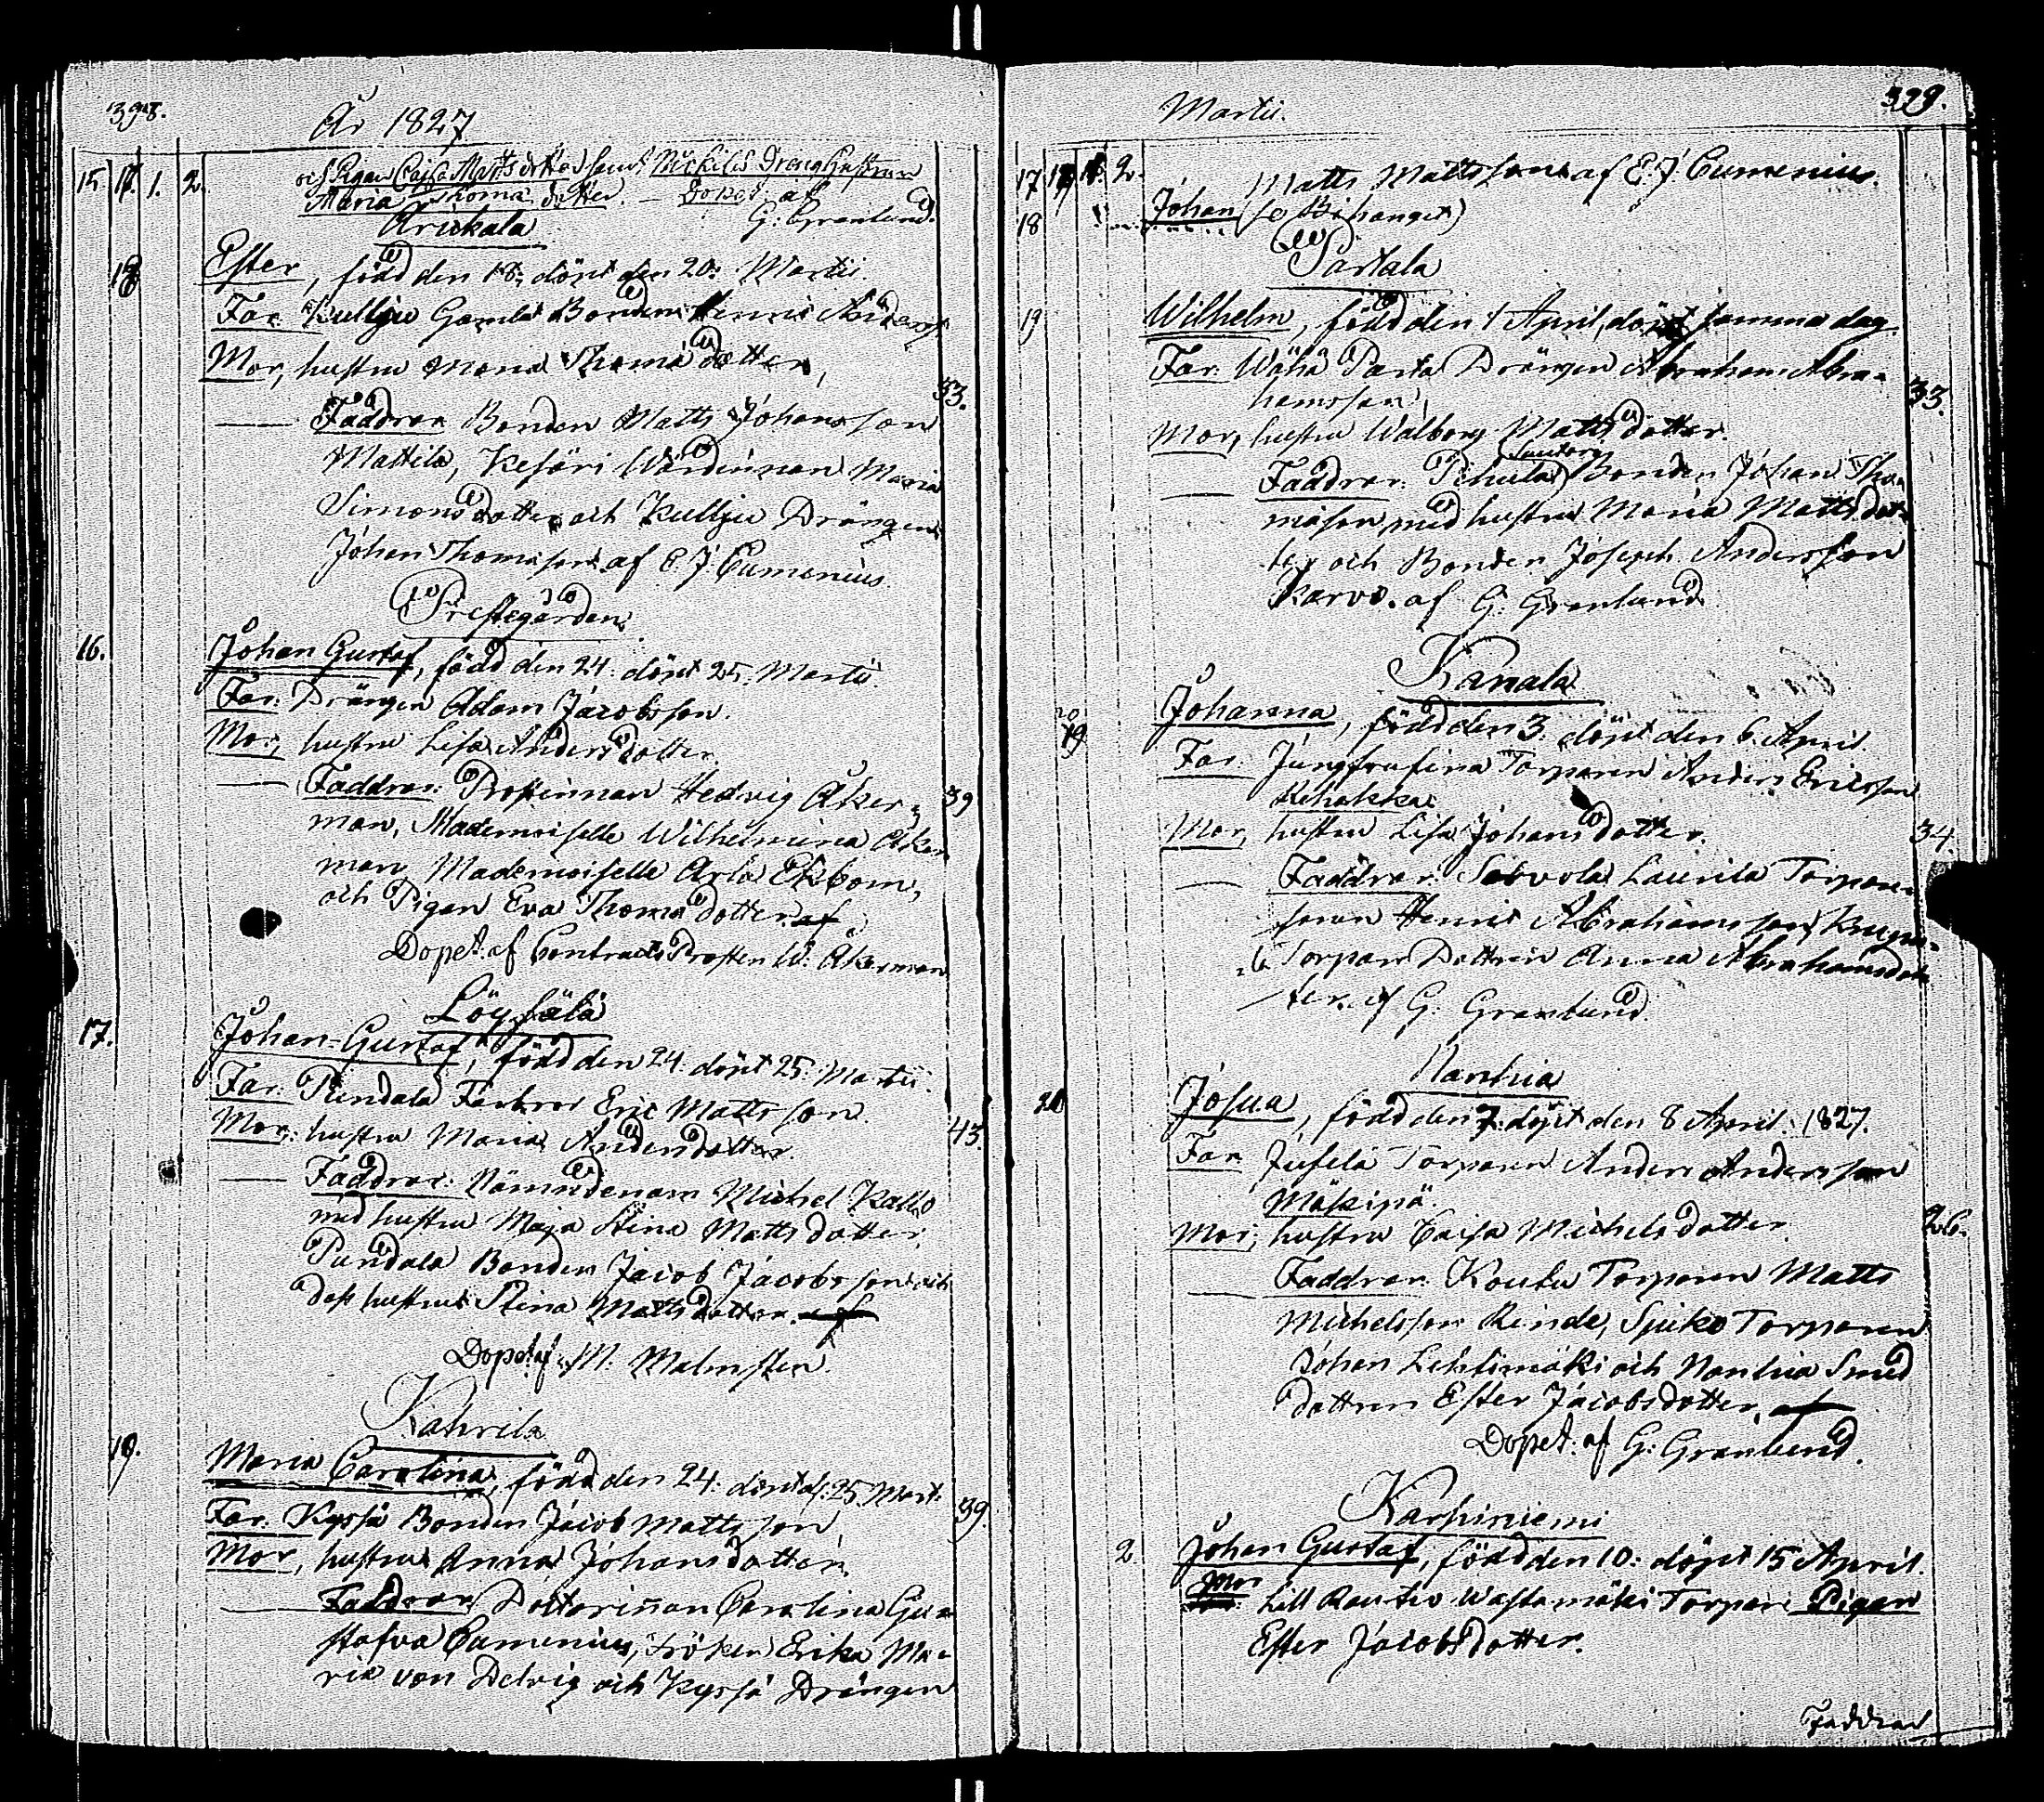 398.
År 1827
15 17. 1. 2.
och Pigan Cajsa Matts dotter samt Michels Dreng Gustaf
Maria Thomä dotter. — Döpet af
G: Granlund.
Arickala
18 Ester, född den 18: döpt den 20: Martii.
Far. Kullju Gamla Bonden Henric
Mor, hustru Maria Thomä dotter,
33.
Faddrar Bonden Matts Johansson
Mattila, Kesäri Wärdinnan Maria
Simonsdotter och Kullju Drängen
Johan Thomasson. af E. J. Cumenius.
Prestegården
16. Johan Gustaf, född den 24. döpt 25. Martii.
Far: Drängen Adam Jacobsson.
Mor, hustru Lisa Anders dotter.
Faddrar: Prostinnan Hedvig Åker- 39
man, Mademoiselle Wilhelmina Åker
man, Mademoiselle Arla Ekbom,
och Pigan Eva Thomä dotter. af
Döpet. af Contracts Prosten W. Åkerman
Löysälä
17. Johan-Gustaf, född den 24. döpt 25. Martii.
Far. Pundala Farbror Eric Mattsson.
Mor: hustru Maria Andersdotter. 43.
Faddrar: Nämndeman Michel Kallo
med hustru Maja Stina Matts dotter,
Pundala Bonden Jacob Jacobsson och
dess hustru Stina Matts dotter. af
Döpet af M. Malmsten.
Kahrila
19. Maria Carolina, född den 24. döpt d. 25. Mart.
Far. Kyssä Bonden Jacob Mattsson, 39.
Mor, hustru Anna Johansdotter.
Faddrar, Doctorinnan Carolina Gu-
stafva Cumenius, Fröken Erika Ma-
ria von Delvig och Kyssä Drängen
Martii.
329.
17 2. Matts Mattsson. af E. J. Cumenius.
18 Johan (se Bihanget)
Sartala
19 Wilhelm, född den 1 April, döpt samma dag
Far: Wähä Parta Drängen Abraham Abra-
hamsson, 33.
Mor, hustru Walborg Matts dotter.
Faddrar: Bonden Johan Tho-
mason med hustru Maria Matts dot-
ter och Bonden Joseph Andersson
Karvo. af G: Granlund
Kamala
20 19 Johanna, född den 3. döpt den 6. April.
Far: Jungfrufina Torparen Anders Ericsson
Kehakka
Mor, hustru Lisa Johans dotter. 34.
Faddrar: Laurila Torpare-
sonen Henric Abrahamsson,
Torpare Dottren Anna Abrahamsdot-
ter. af G: Granlund
Nanhia
20 Josua, född den 7. döpt den 8 April. 1827.
Far Torparen Anders Andersson
Mäkipä
Mor, hustru Caisa Michels dotter. 26.
Faddrar. Kouku Torparen Matts
Michelsson Rinde, Torparen
Johan Lehtimäki och Nanhia Smed
dottren Ester Jacobsdotter. af
Döpet: af G: Granlund.
Karhiniemi
2 Johan Gustaf, född den 10: döpt 15 April.
Mor Lill Rautio Torpare Pigan
Ester Jacobsdotter.
Faddrar